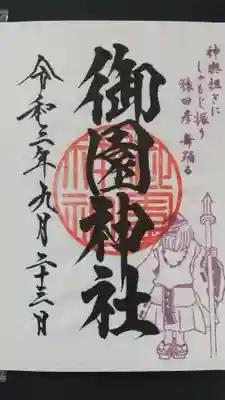 神輿組きに
しゃもじ振り
猿田彦 舞踊る
御園神社
令和三年九月二十三日